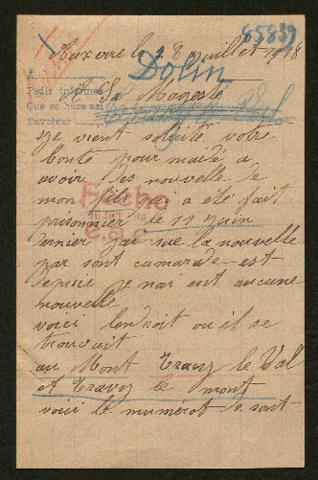 65839
Auxerre le 28 juillet 1918
Dolin
A
Pedir informes
Que se haga asi
Devolver
A Sa Magesté
Fecho
E.S.C.
Je vient solicité votre
bonté pour m'aidé a
avoir des nouvelle de
mon fils qui a été fait
prisonnier le 11 juin
dernier j'ai sue la nouvelle
par sont camarade est
depuis je n'ai est aucune
nouvelle
voici lendroit ou il se
trouvait
au Mont Travy le Val
et Travy le mont
voici le numérot de sont